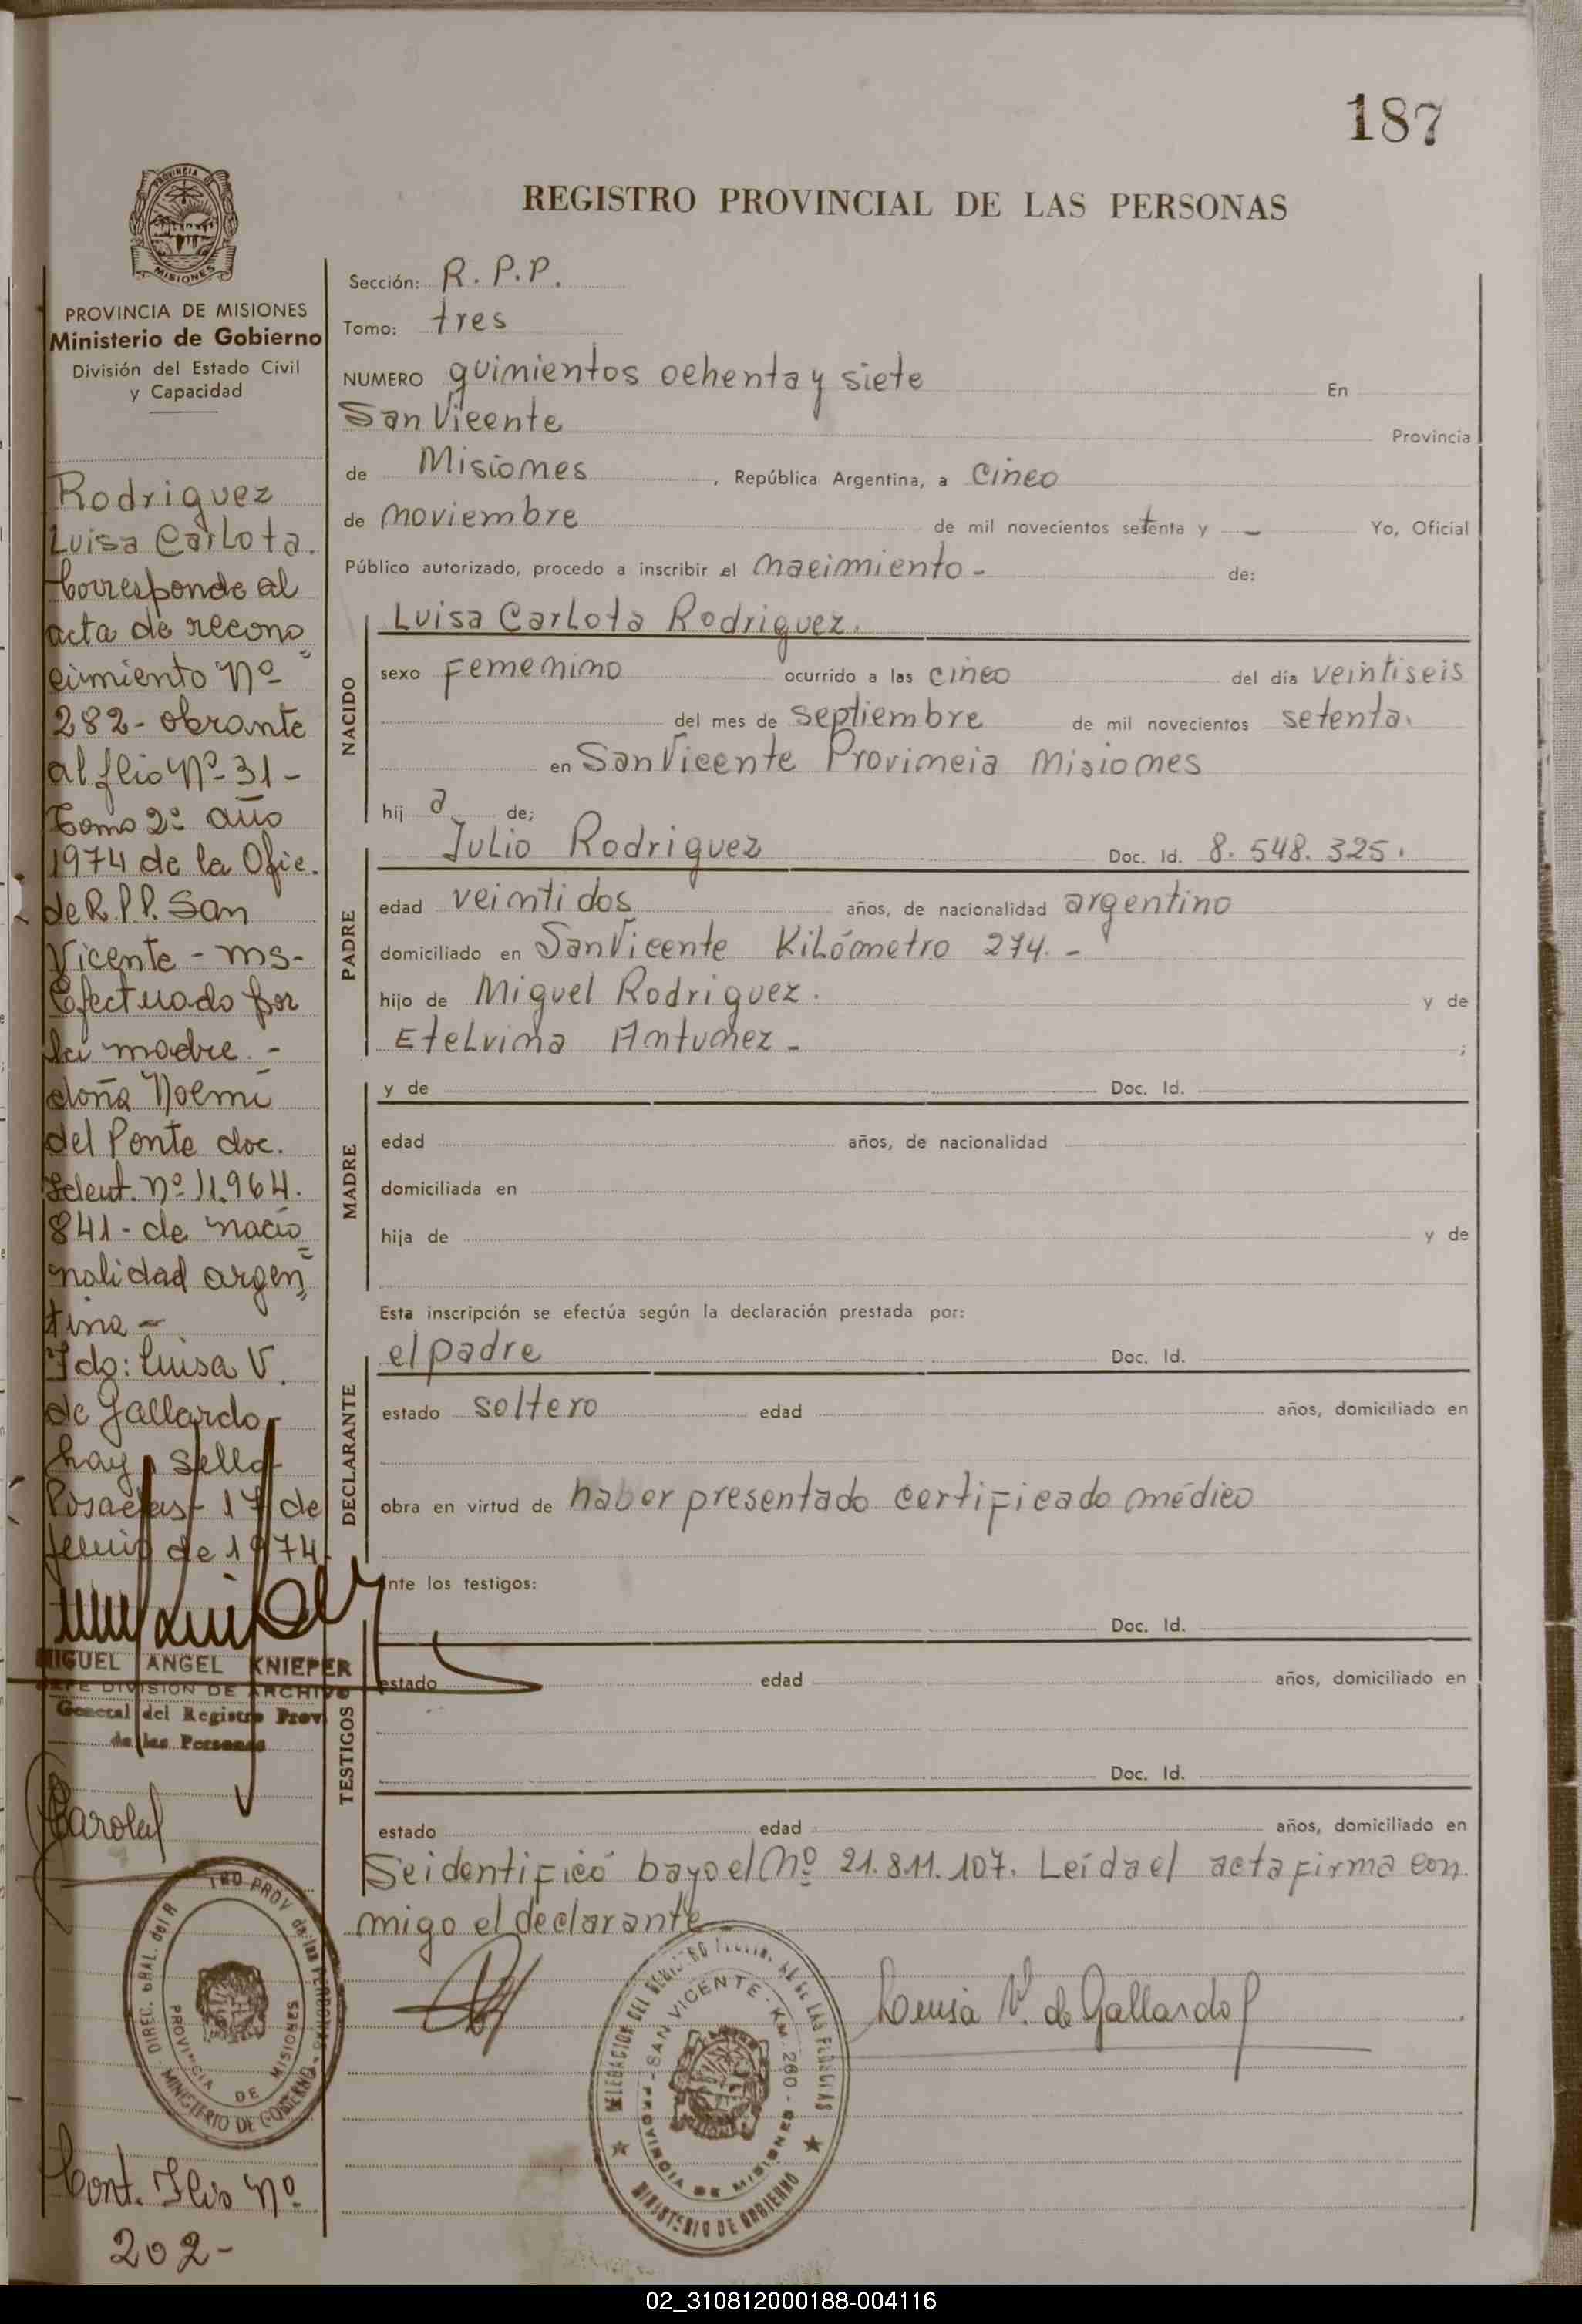 187
REGISTRO PROVINCIAL DE LAS PERSONAS
PROVINCIA DE MISIONES
PROVINCIA DE MISIONES
Ministerio de Gobierno
División del Estado Civil
y Capacidad
Rodriguez
Luisa Carlota.
Corresponde al
acta de recono
cimiento Nº
282- obrante
al flio Nº 31-
Tomo 2º año
1974 de la Ofic.
de R.P.P. San
Vicente - Ms-
Efectuado por
la madre. -
doña Noemi
del Ponte doc.
Ident. Nº 11.964.
841- de nacio
nalidad argen
tina -
Fdo: Luisa V.
de Gallardo
hay sello
Posadas 17 de
de 1974
MIGUEL ANGEL KNIEPER
JEFE DIVISION DE ARCHIVO
General del Registro Prov
de las Personas
DIREC. GRAL. del R PROV de las PERSONAS
PROVINCIA DE MISIONES
MINISTERIO DE GOBIERNO
Cont. Flio Nº
202-
Sección: R.P.P.
Tomo: tres
NUMERO quinientos ochenta y siete En
San Vicente Provincia
de Misiones , República Argentina, a cinco
de noviembre de mil novecientos setenta y — Yo, Oficial
Público autorizado, procedo a inscribir el nacimiento - de:
NACIDO
Luisa Carlota Rodriguez.
sexo femenino ocurrido a las cinco del día veintiseis
del mes de septiembre de mil novecientos setenta.
en San Vicente Provincia Misiones
hij a de;
PADRE
Julio Rodriguez Doc. Id. 8.548.325.
edad veinti dos años, de nacionalidad argentino
domiciliado en San Vicente Kilómetro 274. -
hijo de Miguel Rodriguez. y de
Etelvina Antunez - ;
MADRE
y de Doc. Id.
edad años, de nacionalidad
domiciliada en
hija de y de
Esta inscripción se efectúa según la declaración prestada por:
DECLARANTE
el padre Doc. Id.
estado soltero edad años, domiciliado en
obra en virtud de haber presentado certificado médico
nte los testigos:
TESTIGOS
Doc. Id.
estado edad años, domiciliado en
Doc. Id.
estado edad años, domiciliado en
Se identificó bayo el Nº 21.811.107. Leída el acta firma con
migo el declarante
SAN VICENTE - KM. 260 -
PROVINCIA DE MISIONES
MINISTERIO DE GOBIERNO
Luisa V. de Gallardo
02_310812000188-004116